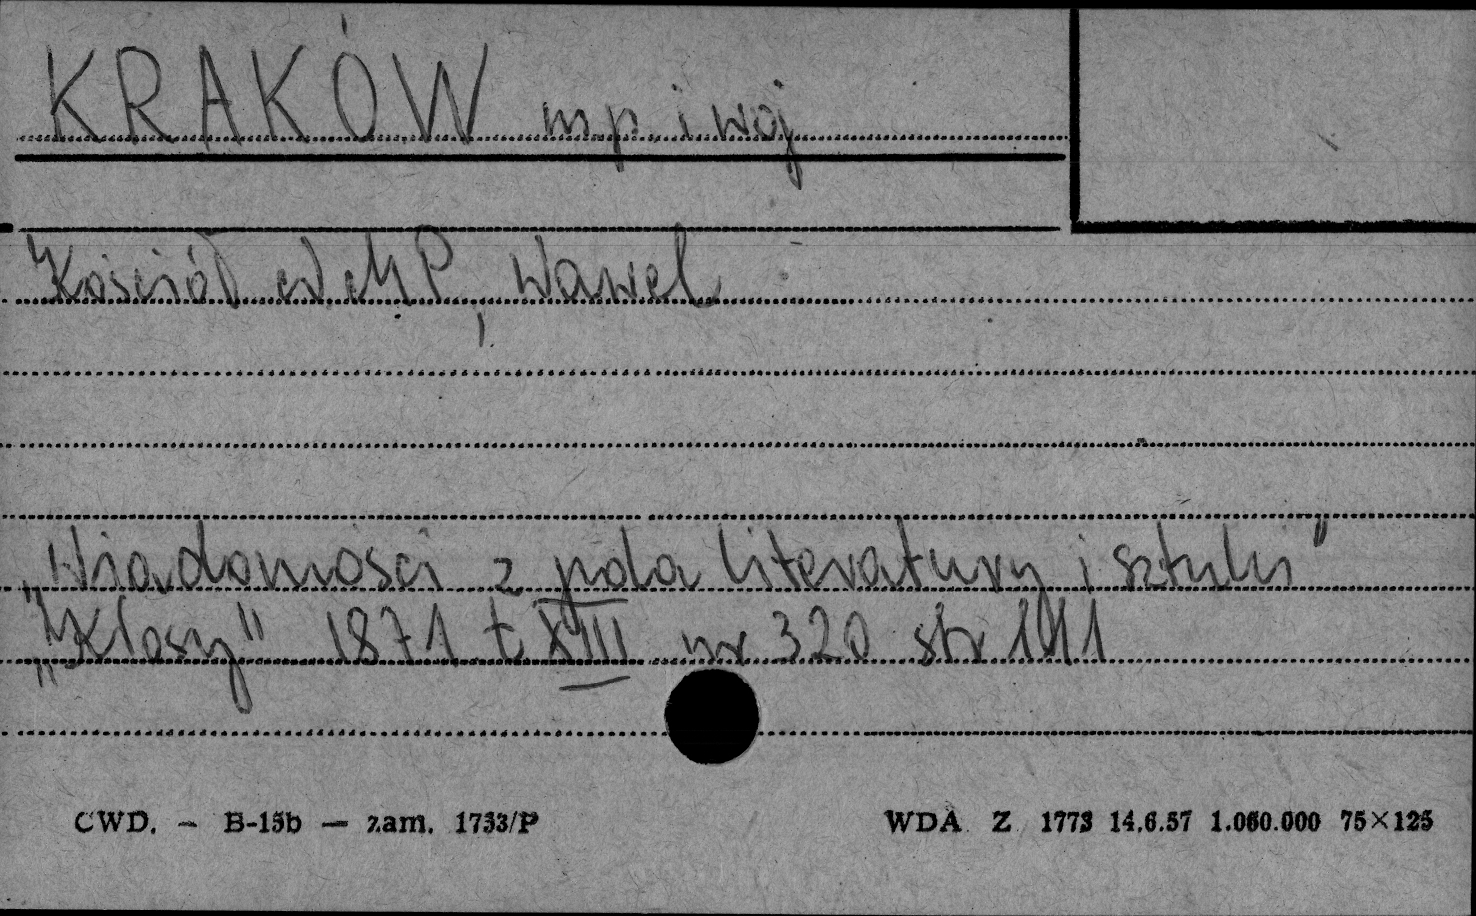 KRAKÓW mp. i woj
Kościół N.M P, Wawel
„Wiadomości z pola literatury i sztuki"
„Kłosy" 1871 t XIII nr 320 str
CWD. — B-15b — zam. 1733/P
WDA Z 1773 14.6.57 1.060.000 75×125